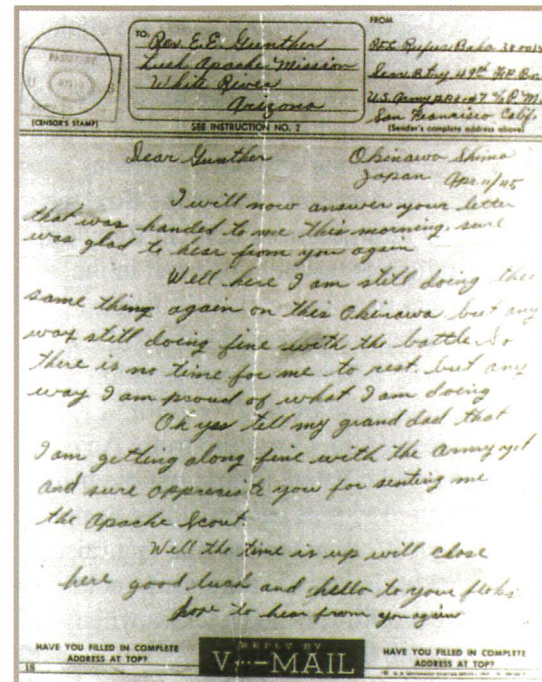 PASSED BY
U S
(CENSOR'S STAMP)
TO:
Rev. E. E. Gunther
Luth. Apache Mission
White River
Arizona
SEE INSTRUCTION NO. 2
FROM
Pfc Rufus Baha
49th F.A. Bn
U.S. Army
San Francisco Calif.
(Sender's complete address above)
Dear Gunther
Okinawa Shima
Japan Apr 11/45
I will now answer your letter
that was handed to me this morning. sure
was glad to hear from you again
Well here I am still doing the
same thing again on this Okinawa but any
way still doing fine with the battle. So
there is no time for me to rest. but any
way I am proud of what I am doing
Oh yes tell my grand dad that
I am getting along fine with the army yet
and sure appresiate you for senting me
the Apache Scout.
Well the time is up will close
here good luck and hello to your floks
hope to hear from you again
HAVE YOU FILLED IN COMPLETE
ADDRESS AT TOP?
REPLY BY
V···—MAIL
HAVE YOU FILLED IN COMPLETE
ADDRESS AT TOP?